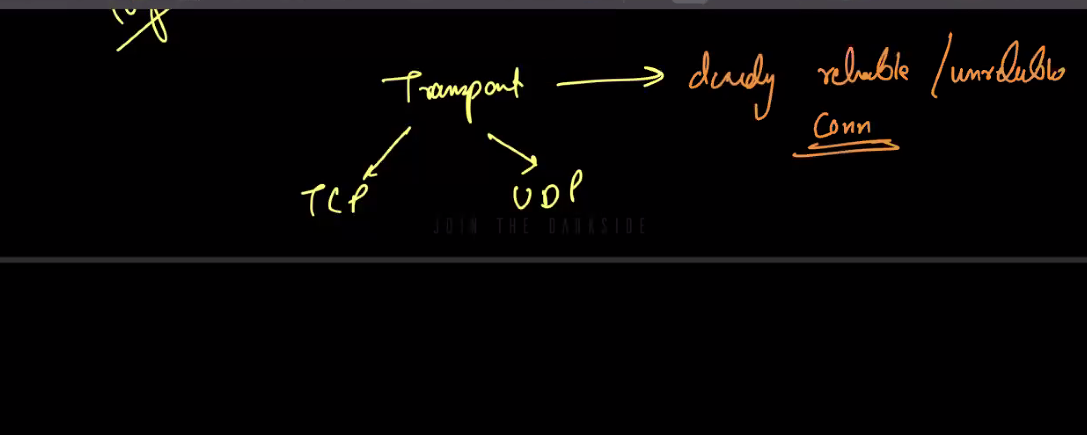 Transport → reliable / unreliable
Conn
TCP UDP
JOIN THE DARKSIDE